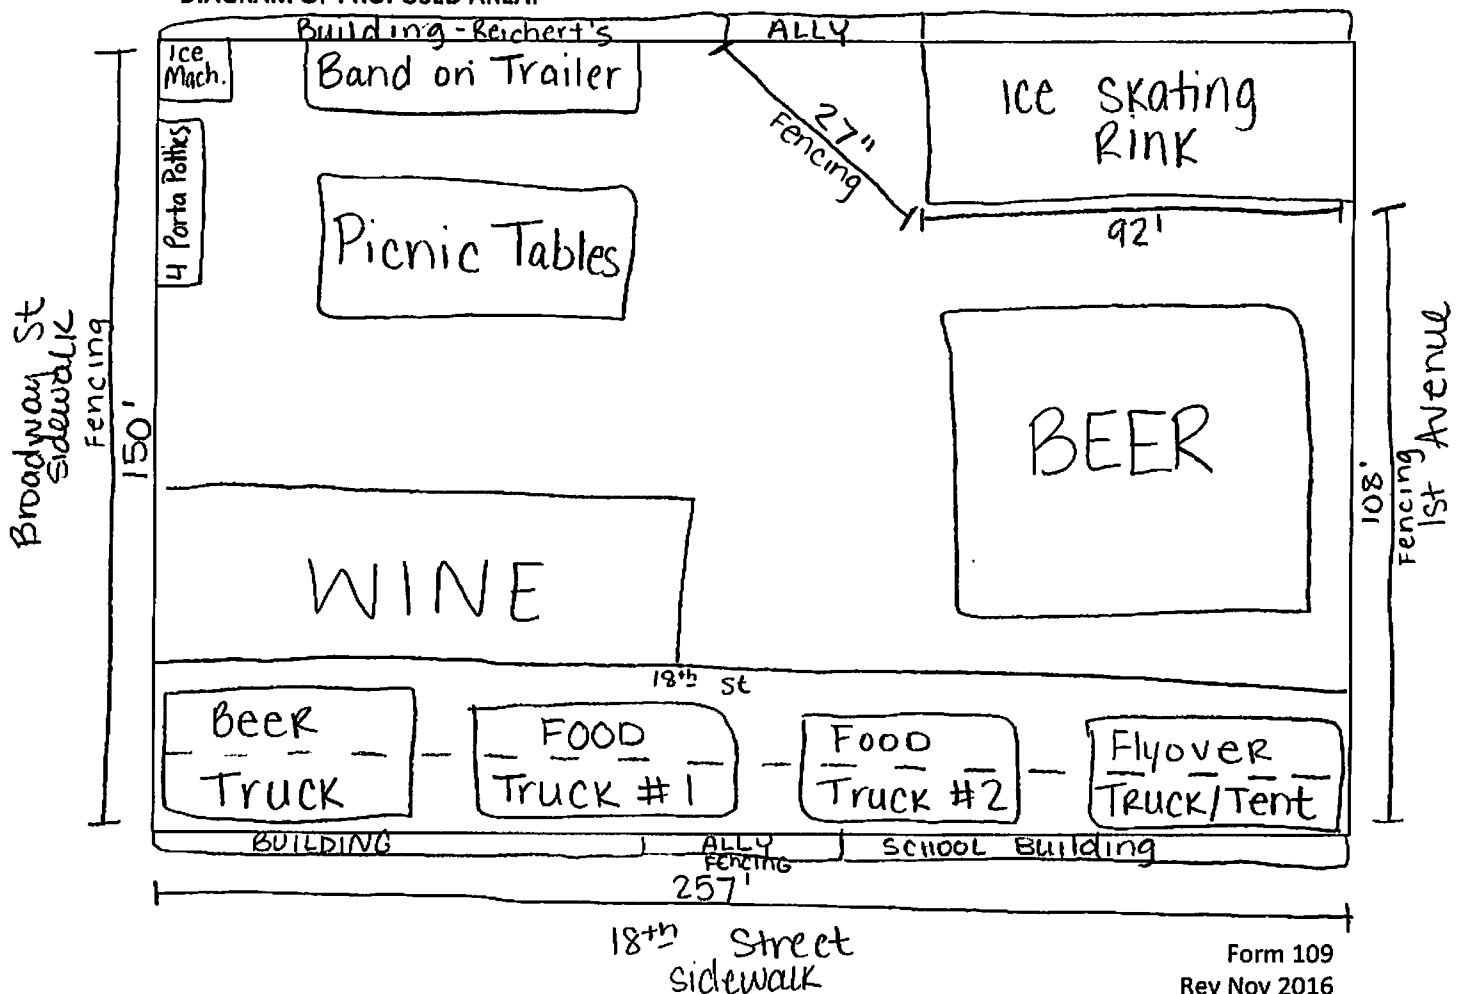 DIAGRAM OF PROPOSED AREA:
Building - Reichert's
ALLY
Ice
Mach.
Band on Trailer
27"
Fencing
Ice Skating
Rink
4 Porta Potties
Picnic Tables
92'
Broadway St
Sidewalk
Fencing
150'
BEER
108'
Fencing
1st Avenue
WINE
18th St
Beer
Truck
FOOD
Truck #1
Food
Truck #2
Flyover
Truck/Tent
BUILDING
ALLY
Fencing
SCHOOL Building
257'
18th Street
Sidewalk
Form 109
Rev Nov 2016